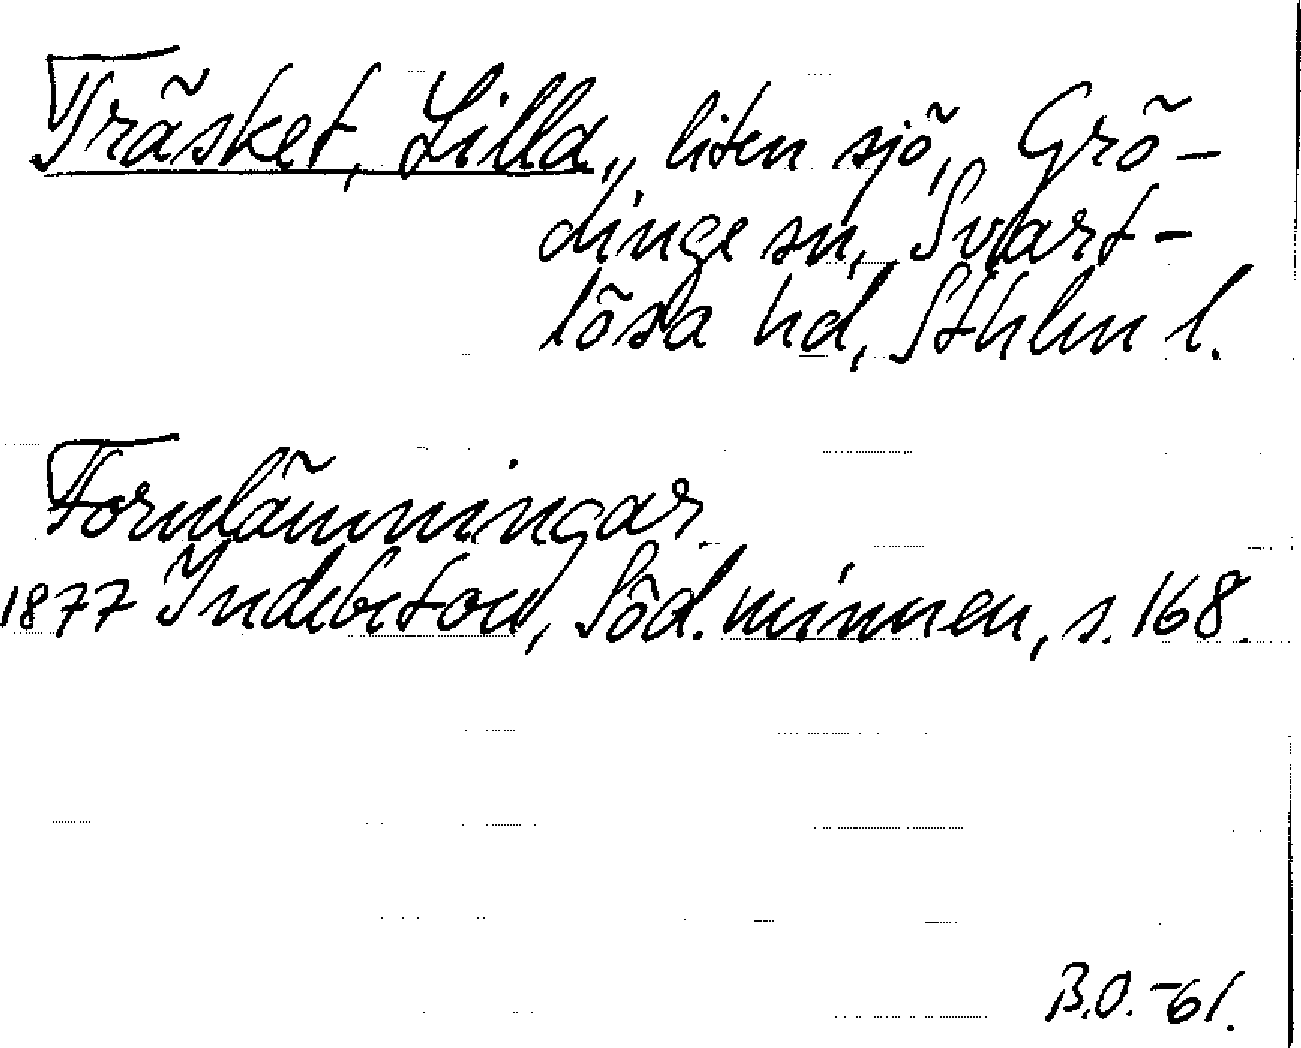 Träsket, Lilla, liten sjö, Grö-
dinge sn, Svart-
lösa hd, Sthlm l.
Fornlämningar.
1877 Indebetou, Söd. minnen, s. 168.
B.O. -61.